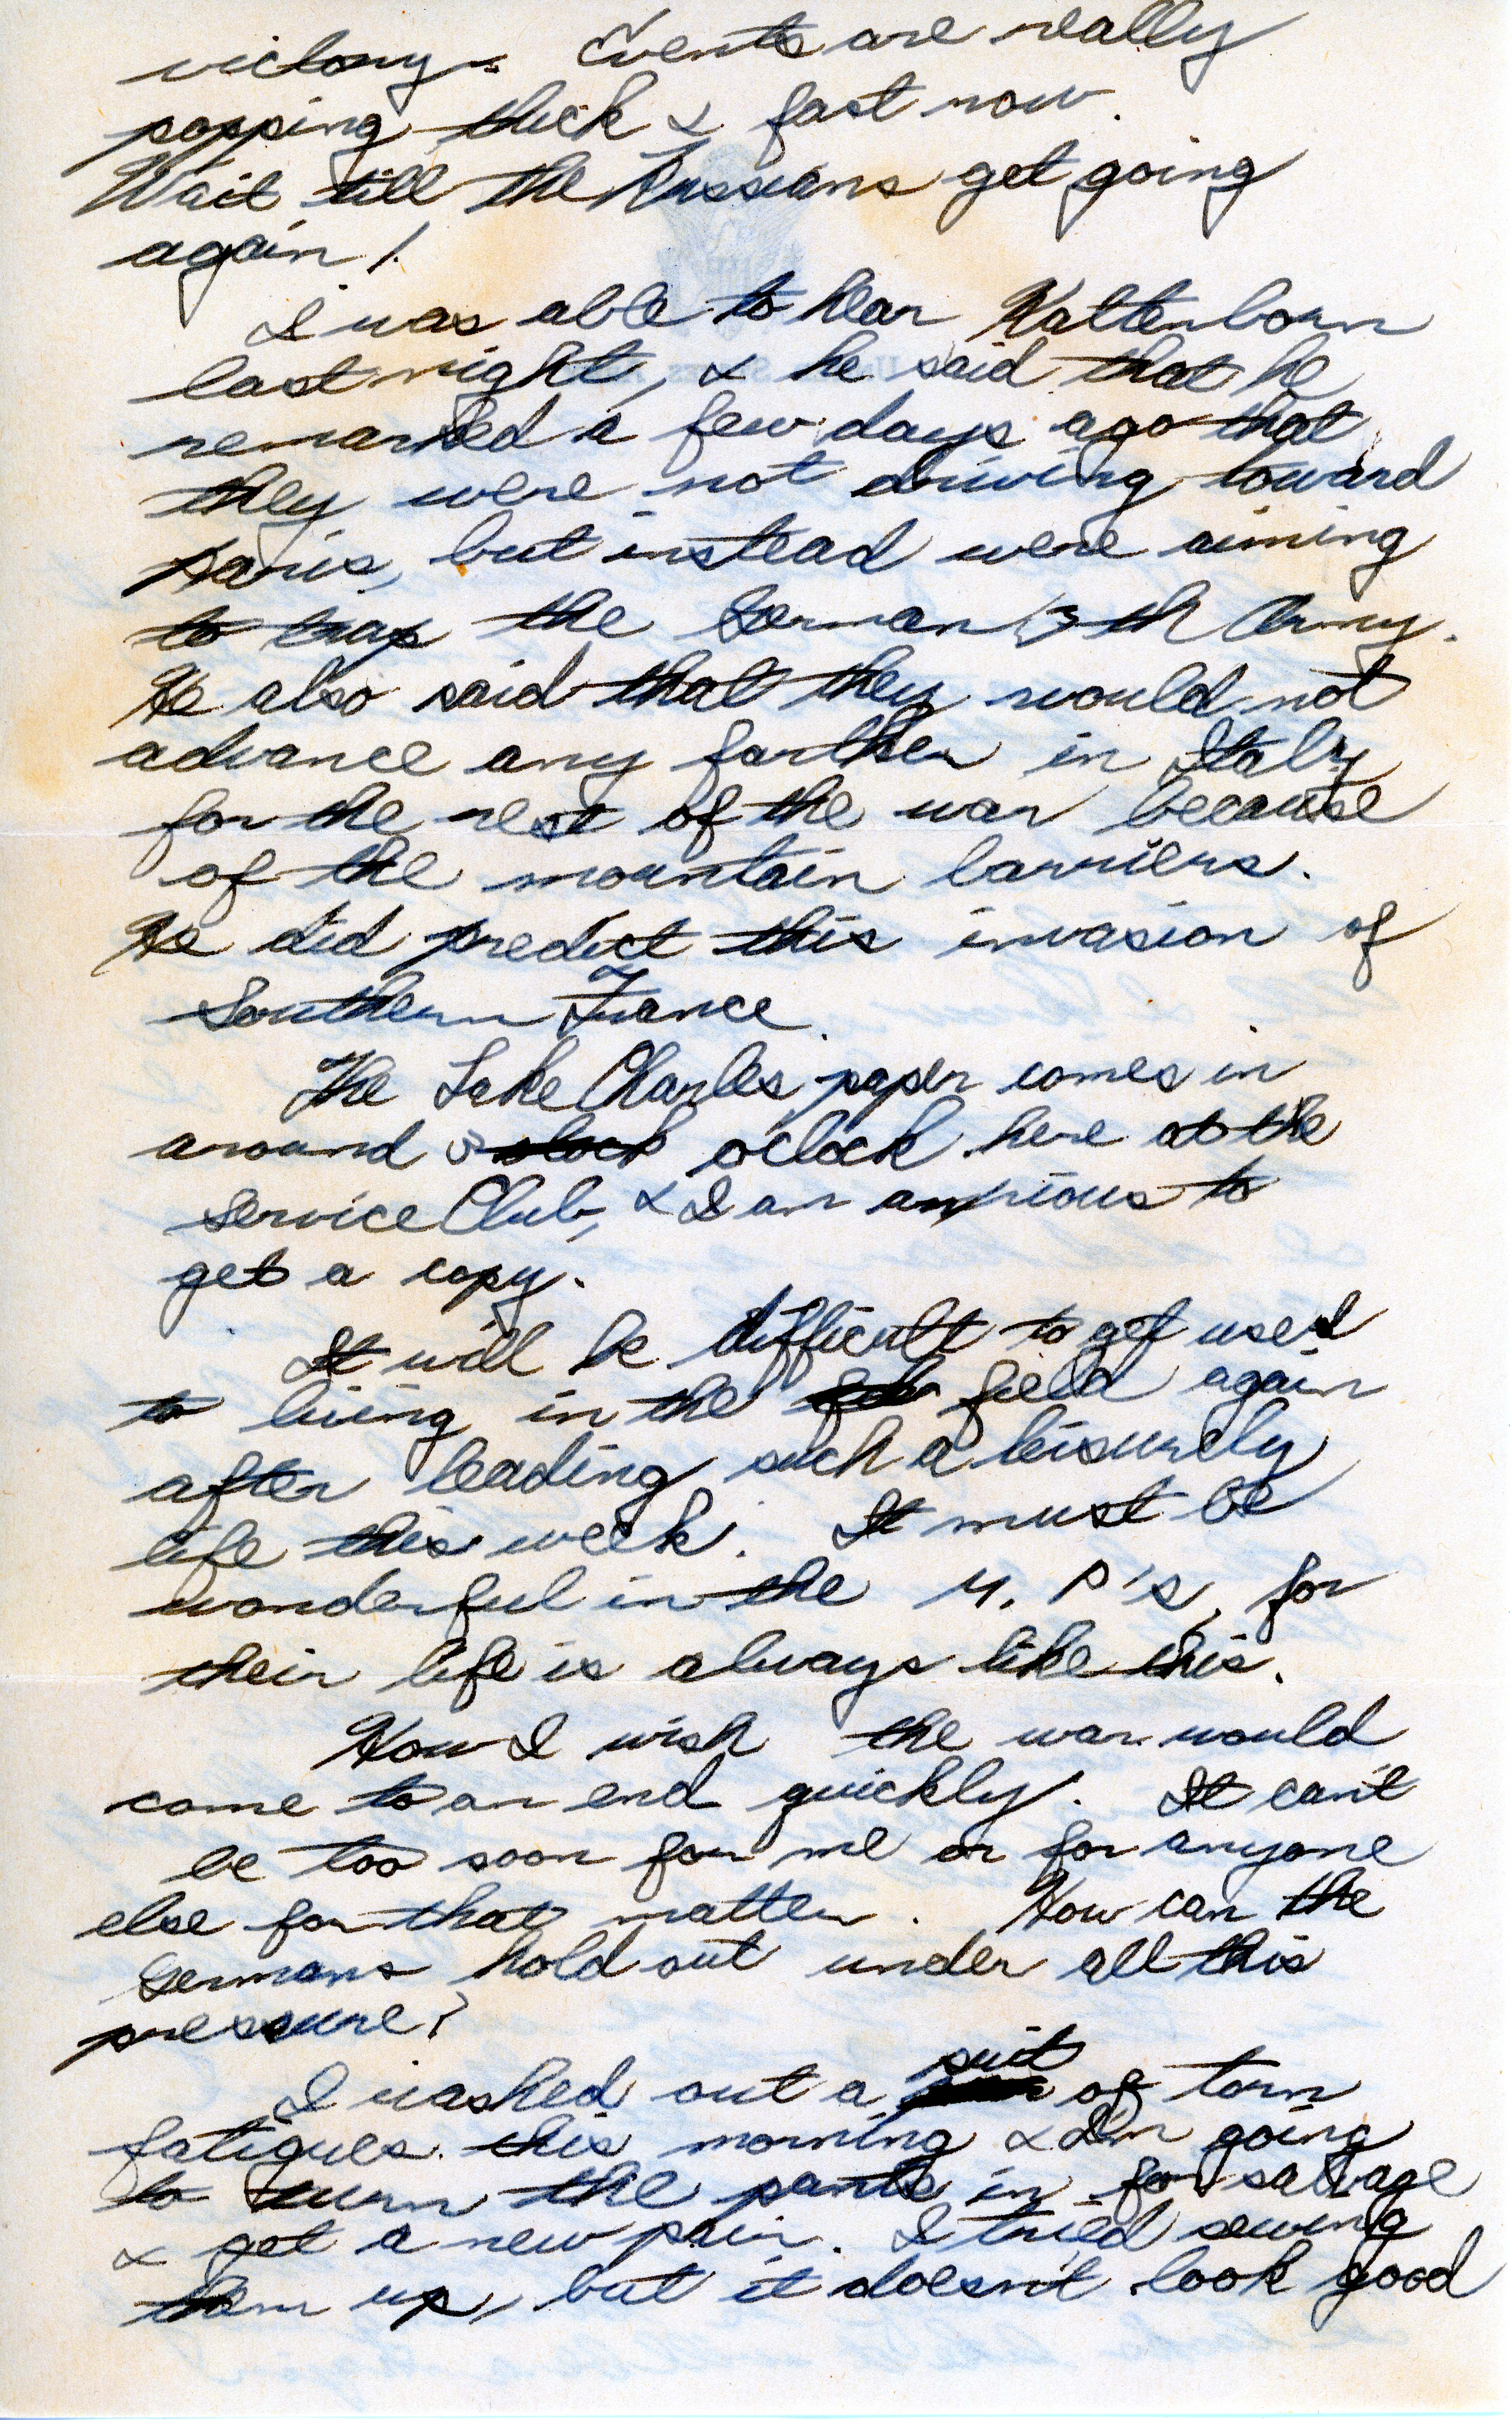 victory. Events are really
popping thick & fast now.
Wait till the Russians get going
again!
I was able to hear Kaltenborn
last night, & he said that he
remarked a few days ago that
they were not driving toward
Paris, but instead were aiming
to trap the German th Army.
He also said that they would not
advance any farther in Italy
for the rest of the war because
of the mountain barriers.
He did predict this invasion of
Southern France.
The Lake Charles paper comes in
around o'clock here at the
Service Club, & I am anxious to
get a copy.
It will be difficult to get used
to living in the field again
after leading such a leisurely
life this week. It must be
wonderful in the M. P.'s, for
their life is always like this.
How I wish the war would
come to an end quickly. It can't
be too soon for me or for anyone
else for that matter. How can the
Germans hold out under all this
pressure?
I washed out a suit of torn
fatigues this morning & I'm going
to turn the pants in for salvage
& get a new pair. I tried sewing
them up, but it doesn't look good